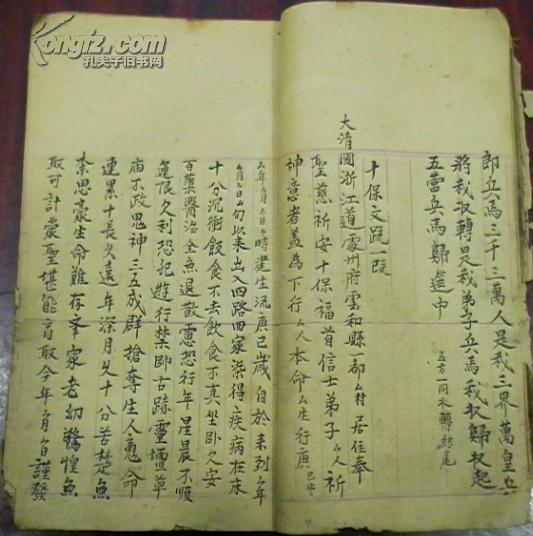 Kongfz.com
孔夫子旧书网
郎兵馬三千三萬人是我三界萬皇兵
將我収轉是我弟子兵馬我収歸収起
五營兵馬歸壇中
五方一同水轉刼尾
十保文疏一段
大清國浙江道處州府雲和縣一都厶村居住奉
聖慈祈安十保福首信士弟子厶人祈
神意者蓋為下行厶人本命厶生行庚
已歲
厶年厶月厶日厶時建生流庚已歲自於來到厶年
厶月厶日厶旬以來出入四路回家染得疾病在床
十分沉衝飯食不去飲食不真坐卧久安
百藥醫治全魚退散憲恐行年星辰不順
運限久利恐犯遊行禁卧古跡靈壇草
庙不政鬼神三五成群搶奪生人䰟命
連累十長久遠年深月久十分苦楚魚
柰思豪生命難存李家老幼驚惶魚
取可計蒙聖堪能言取今年厶月厶日謹發